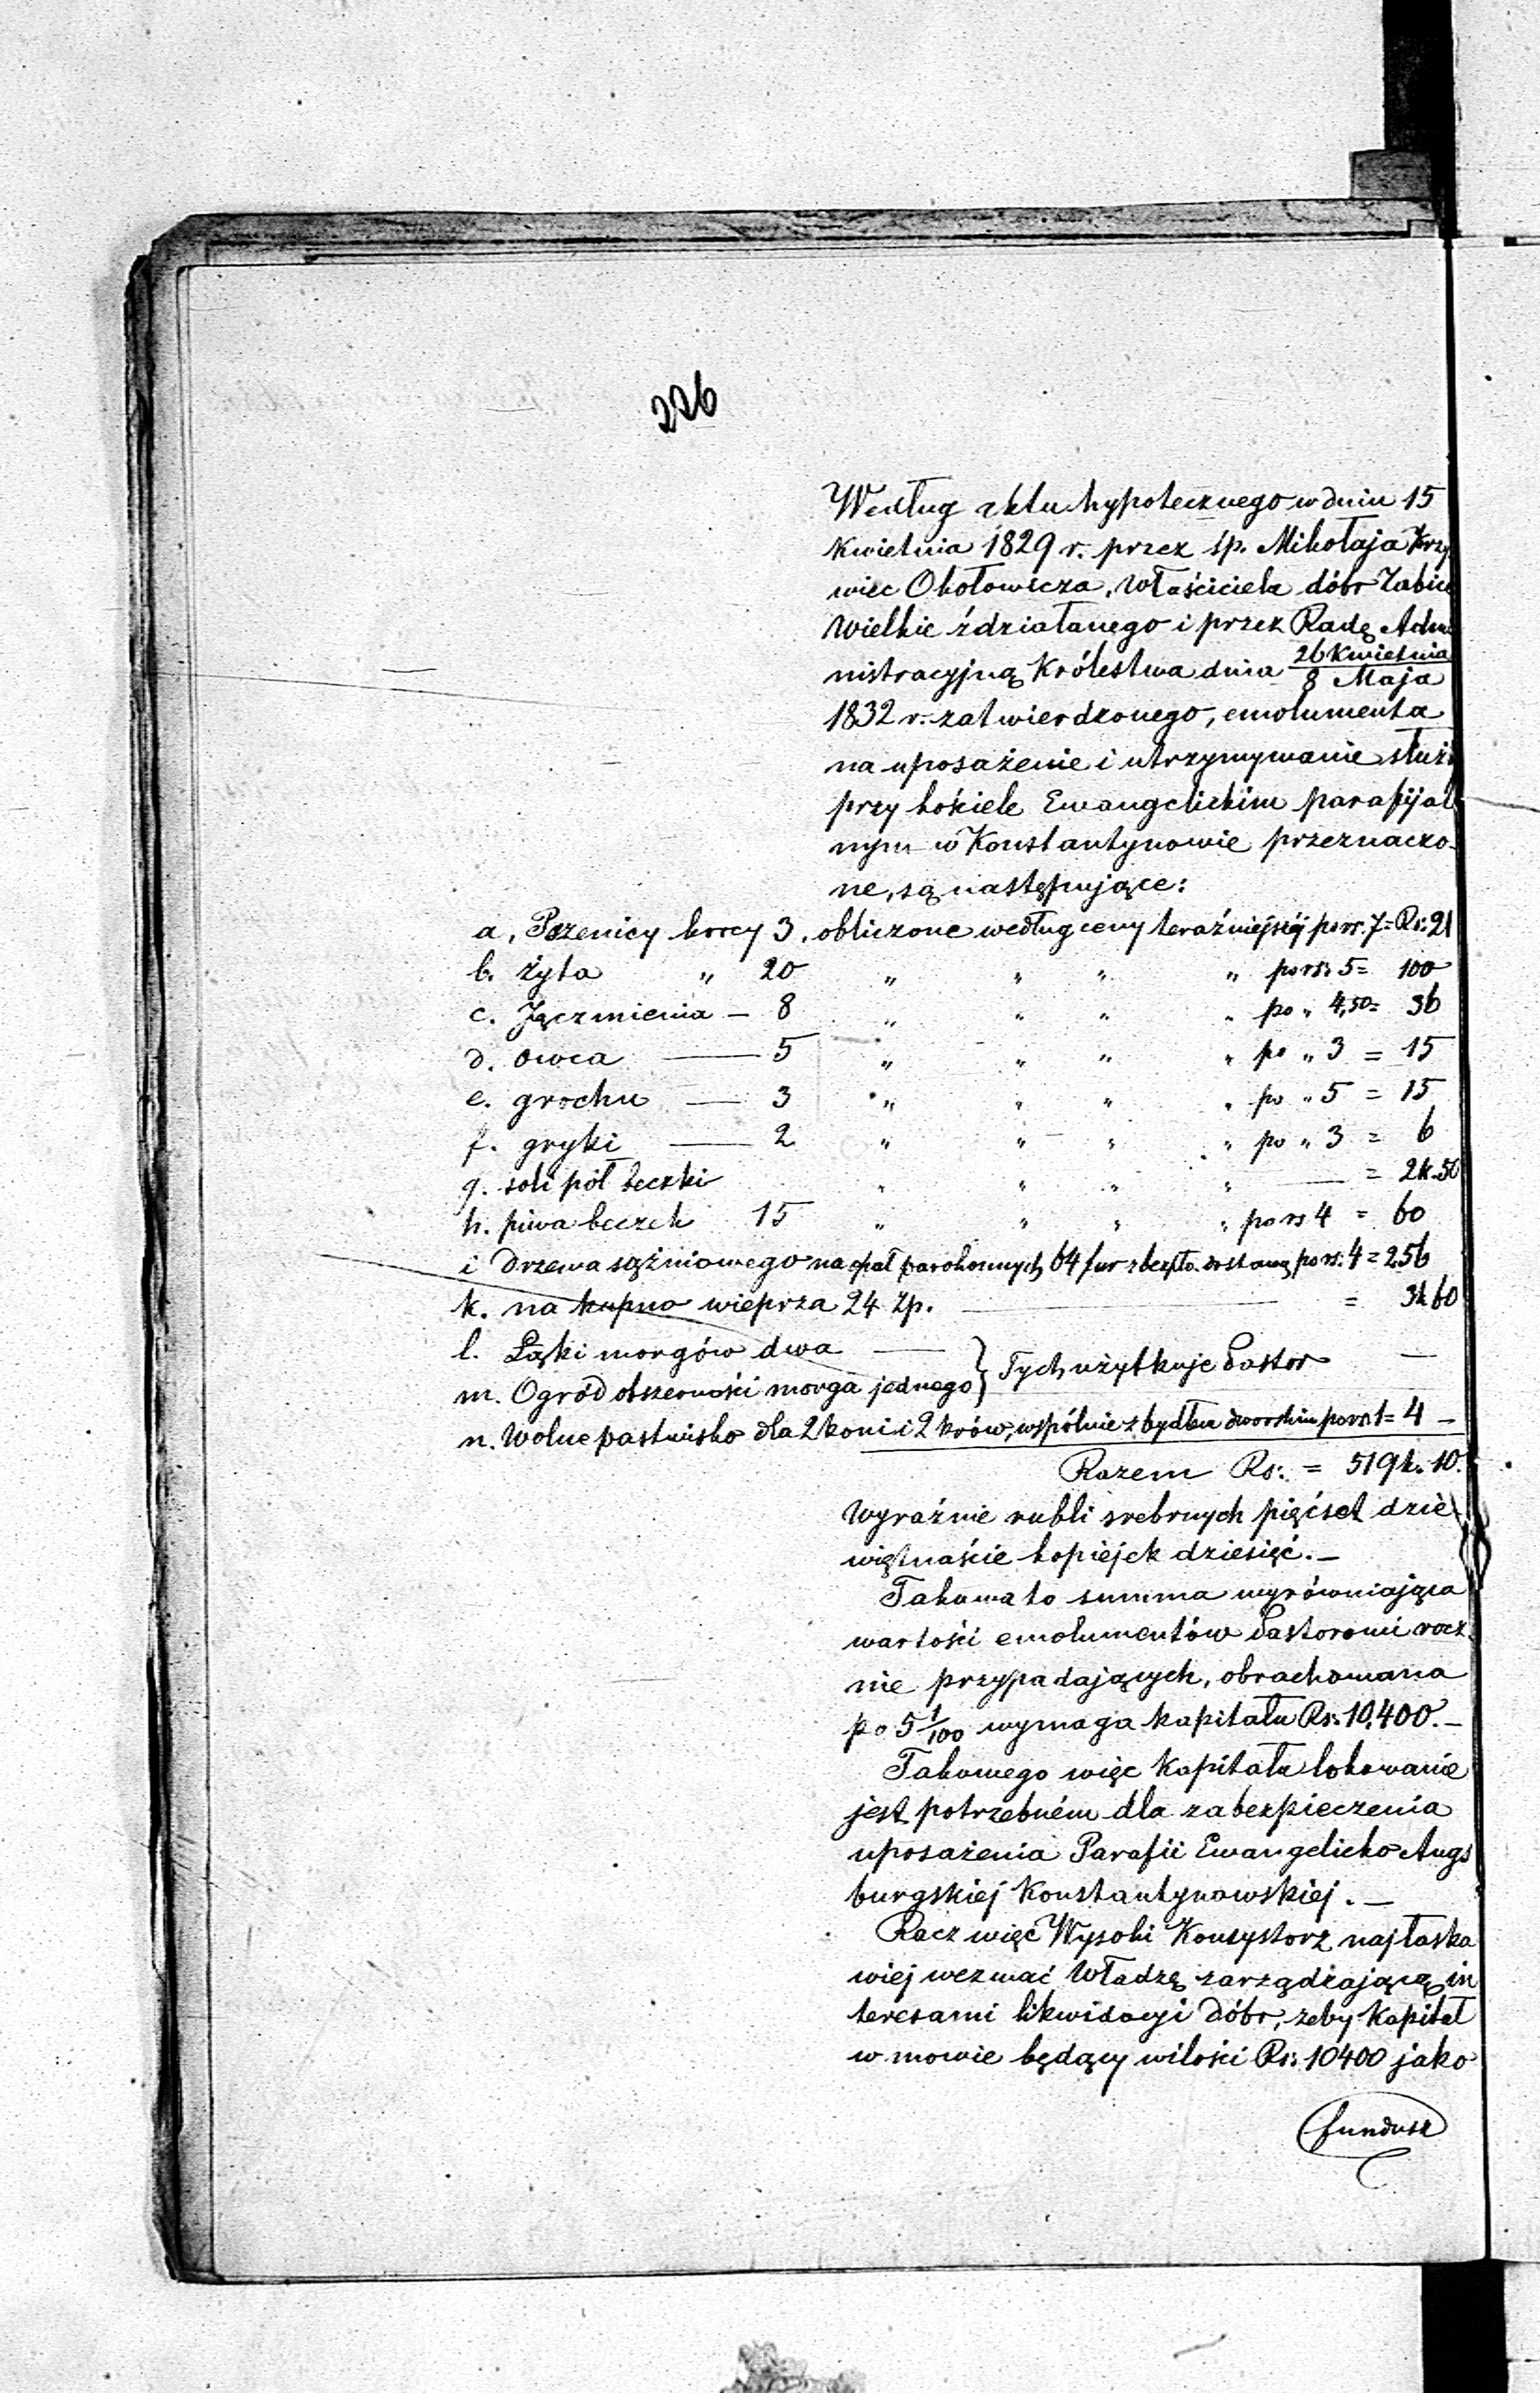 226
Według aktu hypotecznego w dniu 15
Kwietnia 1829 r. przez śp. Mikołaja Krzy
wiec Okołowicza, Właściciela dóbr Żabice
Wielkie zdziałanego i przez Radę Admi
nistracyjną Królestwa dnia 26 Kwietnia/8 Maja
1832 r. zatwierdzonego, emolumenta
na uposażenie i utrzymywanie służb
przy kościele Ewangelickim parafijal
nym w Konstantynowie przeznaczo-
ne, są następujące:
a, Pszenicy korcy 3, obliczone według ceny teraźniejszéj po rs. 7 = Rs: 21
b. żyta " 20 " " " " po rs: 5 = 100
c. Jęczmienia – 8 " " " " po " 4,50 = 36
d. owca — 5 " " " " po " 3 = 15
e. grochu — 3 " " " " po " 5 = 15
f. gryki — 2 " " " " po " 3 = 6
g. soli pół beczki " " " " — = 2 k. 50
h. piwa beczek 15 " " " " po rs 4 = 60
i Drzewa sążniowego na opał parokonnych 64 fur z bezpła. dostawą po rs: 4 = 256
k. na kupno wieprza 24 Zp. — = 3 k 60
l. Łąki morgów dwa — } Tych użytkuje Pastor —
m. Ogród obszerności morga jednego
n. Wolne pastwisko dla 2 koni i 2 krów, wspólnie z bydłem dworskim po rs 1 = 4 –
Razem Rs: = 519 k. 10.
Wyraźnie rubli srebrnych pięćset dzie-
więtnaście kopiejek dziesięć. –
Takowa to summa wyrówniająca
wartości emolumentów Pastorowi rocz
nie przypadających, obrachowana
po 5 1/100 wymaga kapitału Rs: 10,400. –
Takowego więc Kapitału lokowanie
jest potrzebném dla zabezpieczenia
uposażenia Parafii Ewangelicko Augs
burgskiej Konstantynowskiej. –
Racz więc Wysoki Konsystorz najłaska
wiej wezwać Władzę zarządzającą in
teresami likwidacyi Dóbr, żeby Kapitał
w mowie będący wilości Rs: 10400 jako
fundusz